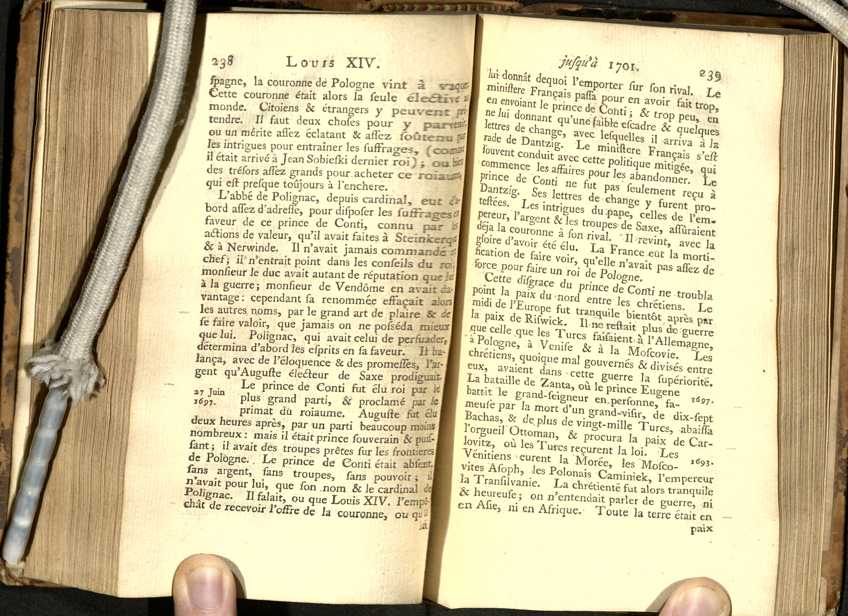 238 LOUIS XIV.
ſpagne, la couronne de Pologne vint à vaquer
Cette couronne était alors la ſeule élective au
monde. Citoïens & étrangers y peuvent pré
tendre. Il faut deux choſes pour y parvenir
ou un mérite aſſez éclatant & aſſez ſoûtenu par
les intrigues pour entraîner les ſuffrages, (comme
il était arrivé à Jean Sobieſki dernier roi); ou bien
des tréſors aſſez grands pour acheter ce roïaume
qui eſt preſque toûjours à l'enchere.
L'abbé de Polignac, depuis cardinal, eut d'a
bord aſſez d'adreſſe, pour diſpoſer les ſuffrages en
faveur de ce prince de Conti, connu par les
actions de valeur, qu'il avait faites à Steinkerque
& à Nerwinde. Il n'avait jamais commandé en
chef; il n'entrait point dans les conſeils du roi
monſieur le duc avait autant de réputation que lui
à la guerre; monſieur de Vendôme en avait da-
vantage: cependant ſa renommée effaçait alors
les autres noms, par le grand art de plaire & de
ſe faire valoir, que jamais on ne poſſéda mieux
que lui. Polignac, qui avait celui de perſuader,
détermina d'abord les eſprits en ſa faveur. Il ba-
lança, avec de l'éloquence & des promeſſes, l'ar-
gent qu'Auguſte électeur de Saxe prodiguait.
27 Juin
1697.
Le prince de Conti fut élu roi par le
plus grand parti, & proclamé par le
primat du roiaume. Auguſte fut élu
deux heures après, par un parti beaucoup moins
nombreux: mais il était prince ſouverain & puiſ-
ſant; il avait des troupes prêtes ſur les frontieres
de Pologne. Le prince de Conti était abſent,
ſans argent, ſans troupes, ſans pouvoir; il
n'avait pour lui, que ſon nom & le cardinal de
Polignac. Il falait, ou que Louis XIV. l'empê
chât de recevoir l'offre de la couronne, ou qu'il
jusqu'à 1701. 239
lui donnât dequoi l'emporter ſur ſon rival. Le
miniſtere Français paſſa pour en avoir fait trop,
en envoiant le prince de Conti; & trop peu, en
ne lui donnant qu'une faible eſcadre & quelques
lettres de change, avec leſquelles il arriva à la
rade de Dantzig. Le miniſtere Français s'eſt
ſouvent conduit avec cette politique mitigée, qui
commence les affaires pour les abandonner. Le
prince de Conti ne fut pas ſeulement reçu à
Dantzig. Ses lettres de change y furent pro-
teſtées. Les intrigues du pape, celles de l'em-
pereur, l'argent & les troupes de Saxe, aſſûraient
déja la couronne à ſon rival. Il revint, avec la
gloire d'avoir été élu. La France eut la morti-
fication de faire voir, qu'elle n'avait pas aſſez de
force pour faire un roi de Pologne.
Cette diſgrace du prince de Conti ne troubla
point la paix du nord entre les chrétiens. Le
midi de l'Europe fut tranquile bientôt après par
la paix de Riſwick. Il ne reſtait plus de guerre
que celle que les Turcs faiſaient à l'Allemagne,
à Pologne, à Veniſe & à la Moſcovie. Les
chrétiens, quoique mal gouvernés & diviſés entre
eux, avaient dans cette guerre la ſupériorité.
La bataille de Zanta, où le prince Eugene 1697.
battit le grand-ſeigneur en perſonne, fa-
meuſe par la mort d'un grand-viſir, de dix-ſept
Bachas, & de plus de vingt-mille Turcs, abaiſſa
l'orgueil Ottoman, & procura la paix de Car-
lovitz, où les Turcs reçurent la loi. Les 1693.
Vénitiens eurent la Morée, les Moſco-
vites Aſoph, les Polonais Caminiek, l'empereur
la Tranſilvanie. La chrétienté fut alors tranquile
& heureuſe; on n'entendait parler de guerre, ni
en Aſie, ni en Afrique. Toute la terre était en
paix